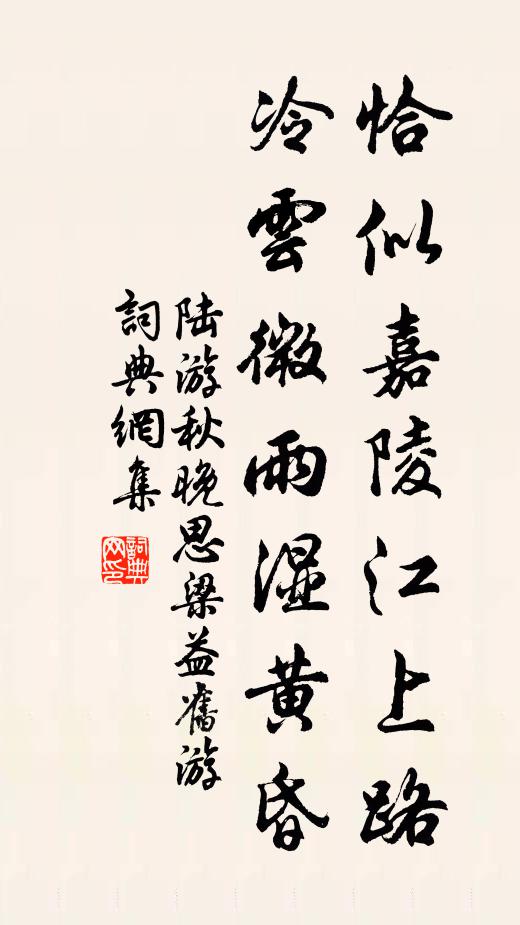 恰似嘉陵江上路
冷雲微雨湿黄昏
陆游秋晚思梁益舊游
詞典網集
詞典网印